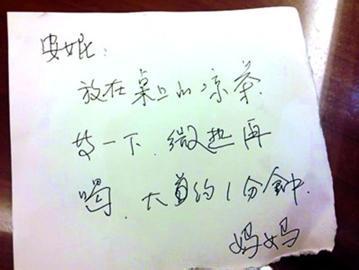 安妮：
放在桌上的凉茶
热一下，微热再
喝，大概约1分钟.
妈妈